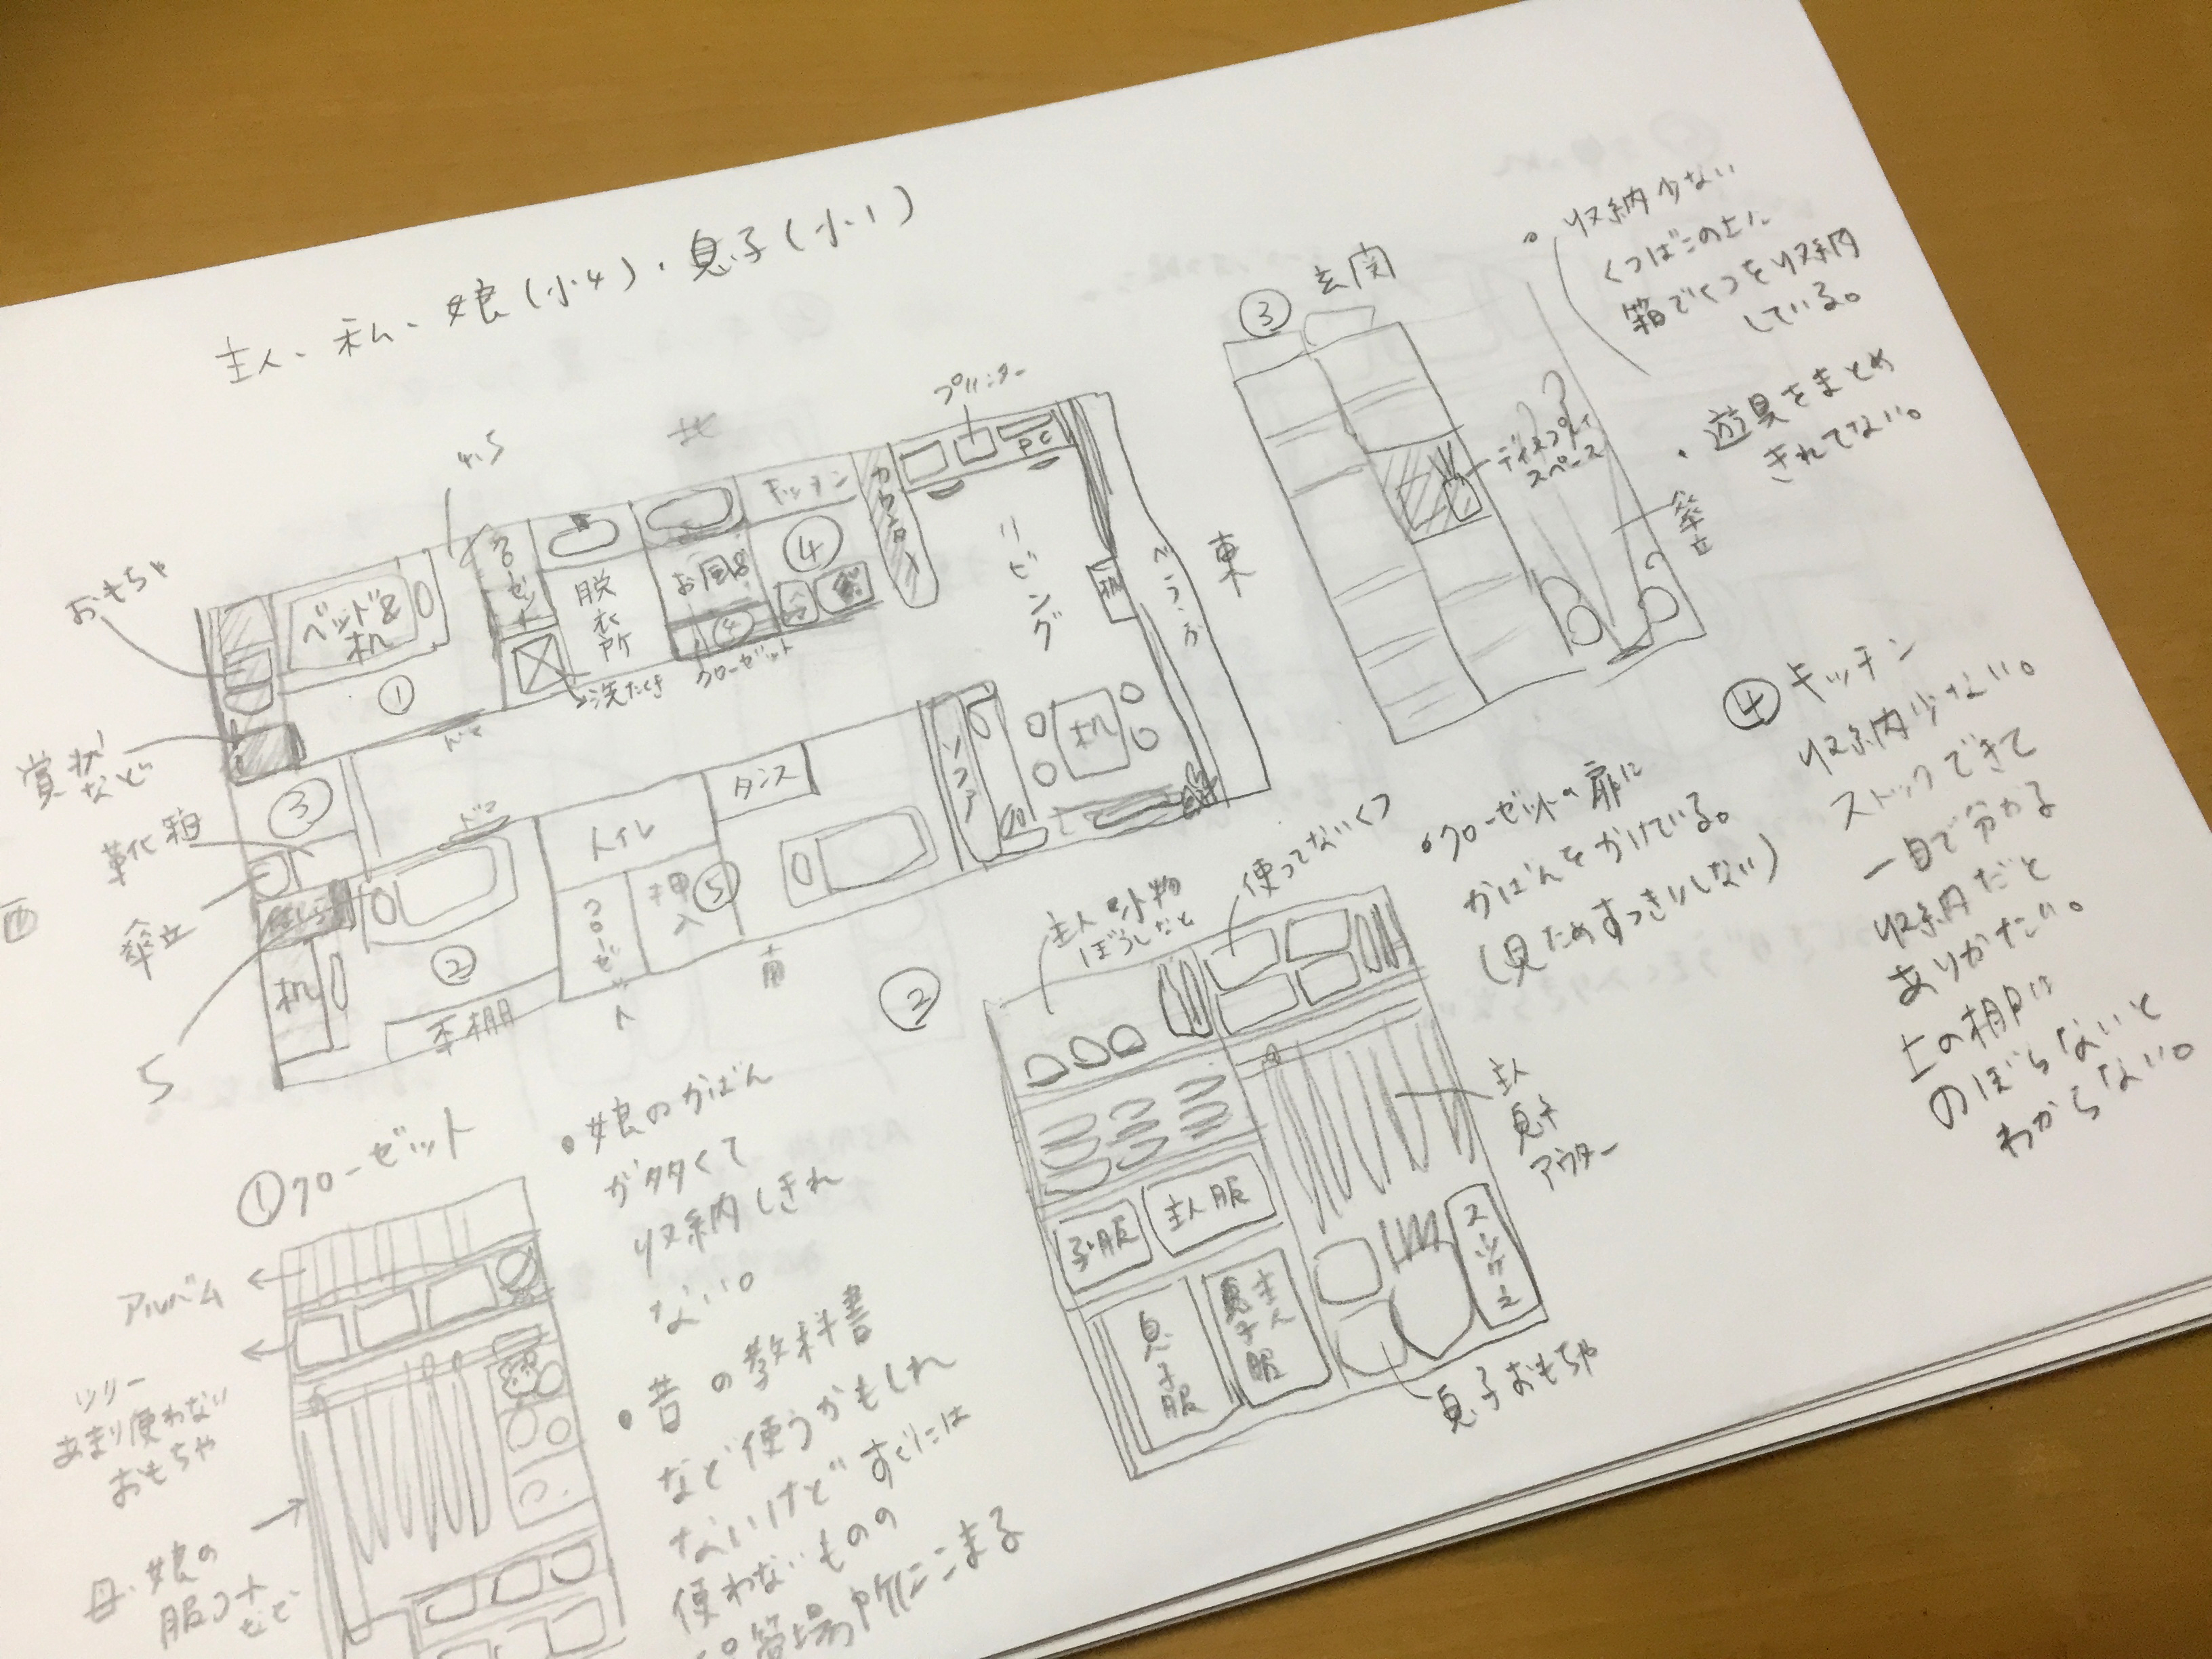 主人・私・娘(小4)・息子(小1)
4.5
北
プリンター
PC
キッチン
カウンター
クローゼット
おもちゃ
ベッド&机
①
脱衣所
お風呂
④
④
冷
リビング
机
ベランダ
東
洗たくき
クローゼット
ドア
賞状など
③
靴箱
傘立
西
5
ドア
②
机
本棚
トイレ
クローゼット
押入
⑤
タンス
南
ソファ
机
③玄関
ディスプレイスペース
傘立
・収納少ない
くつばこの上に
箱でくつを収納
している。
・遊具をまとめ
きれてない。
④キッチン
収納少ない。
ストックできて
一目で分かる
収納だと
ありがたい。
上の棚に
のぼらないと
わからない。
・クローゼットの扉に
かばんをかけている。
(見ためすっきりしない)
②
主人小物
ぼうしなど
使ってないくつ
主人
息子
アウター
子服
主人服
息子服
主人
息子服
スーツケース
息子おもちゃ
①クローゼット
アルバム
ツリー
あまり使わない
おもちゃ
母・娘の
服コート
など
・娘のかばん
が多くて
収納しきれ
ない。
・昔の教科書
など使うかもしれ
ないけどすぐには
使わないものの
管場所にこまる